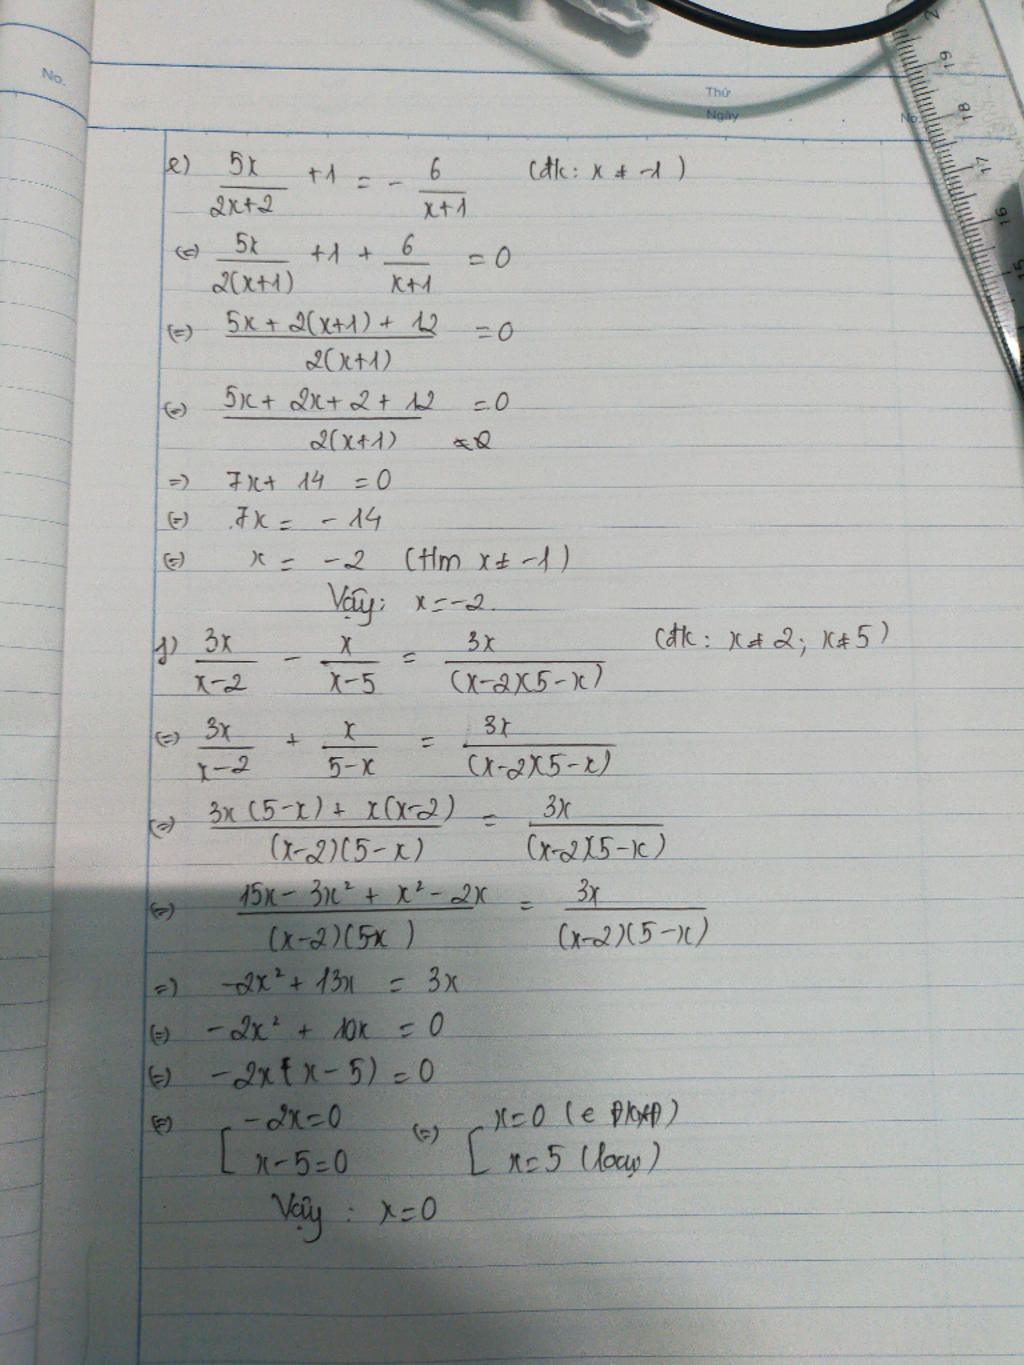 No.
Thứ
Ngày
No.
2 19 18 17 16 15
e) 5x/(2x+2) + 1 = - 6/(x+1) (đk: x ≠ -1)
(=) 5x/(2(x+1)) + 1 + 6/(x+1) = 0
(=) (5x + 2(x+1) + 12)/(2(x+1)) = 0
(=) (5x + 2x + 2 + 12)/(2(x+1)) = 0
=) 7x + 14 = 0
(=) 7x = - 14
(=) x = -2 (tlm x ≠ -1)
Vậy: x = -2.
f) 3x/(x-2) - x/(x-5) = 3x/((x-2)(5-x)) (đk: x ≠ 2; x ≠ 5)
(=) 3x/(x-2) + x/(5-x) = 3x/((x-2)(5-x))
(=) (3x(5-x) + x(x-2))/((x-2)(5-x)) = 3x/((x-2)(5-x))
(=) (15x - 3x² + x² - 2x)/((x-2)(5x)) = 3x/((x-2)(5-x))
=) -2x² + 13x = 3x
(=) -2x² + 10x = 0
(=) -2x(x-5) = 0
(=) [ -2x = 0 (=) [ x = 0 (e ĐKXĐ)
x - 5 = 0 x = 5 (loại)
Vậy: x = 0